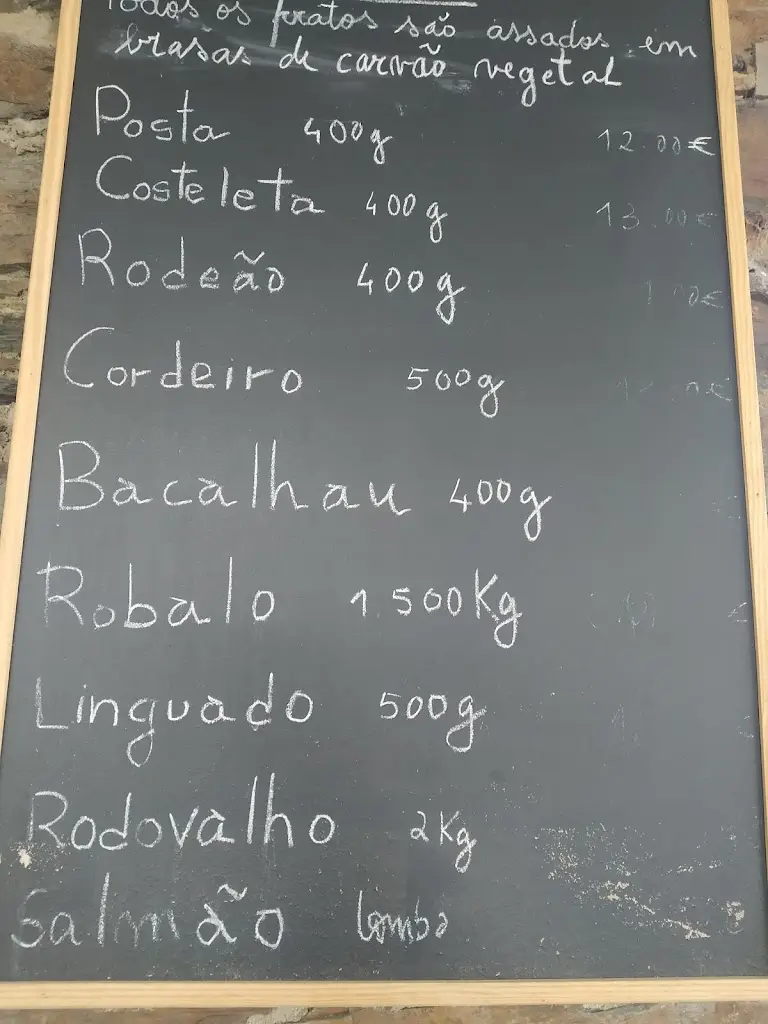 Todos os pratos são assados em
brasas de carvão vegetal
Posta 400g 12.00€
Costeleta 400g 13.00€
Rodeão 400g
Cordeiro 500g
Bacalhau 400g
Robalo 1.500Kg
Linguado 500g
Rodovalho 2Kg
Salmão lombo